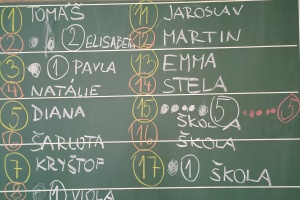 1 TOMÁŠ
2 2 ELISABETH
3 1 PAVLA
4 NATÁLIE
5 DIANA
6 ŠARLOTA
7 KRYŠTOF
8 1 VIOLA
11 JAROSLAV
12 MARTIN
13 EMMA
14 STELA
15 5 5
ŠKOLA
16 ŠKOLA
17 1 ŠKOLA